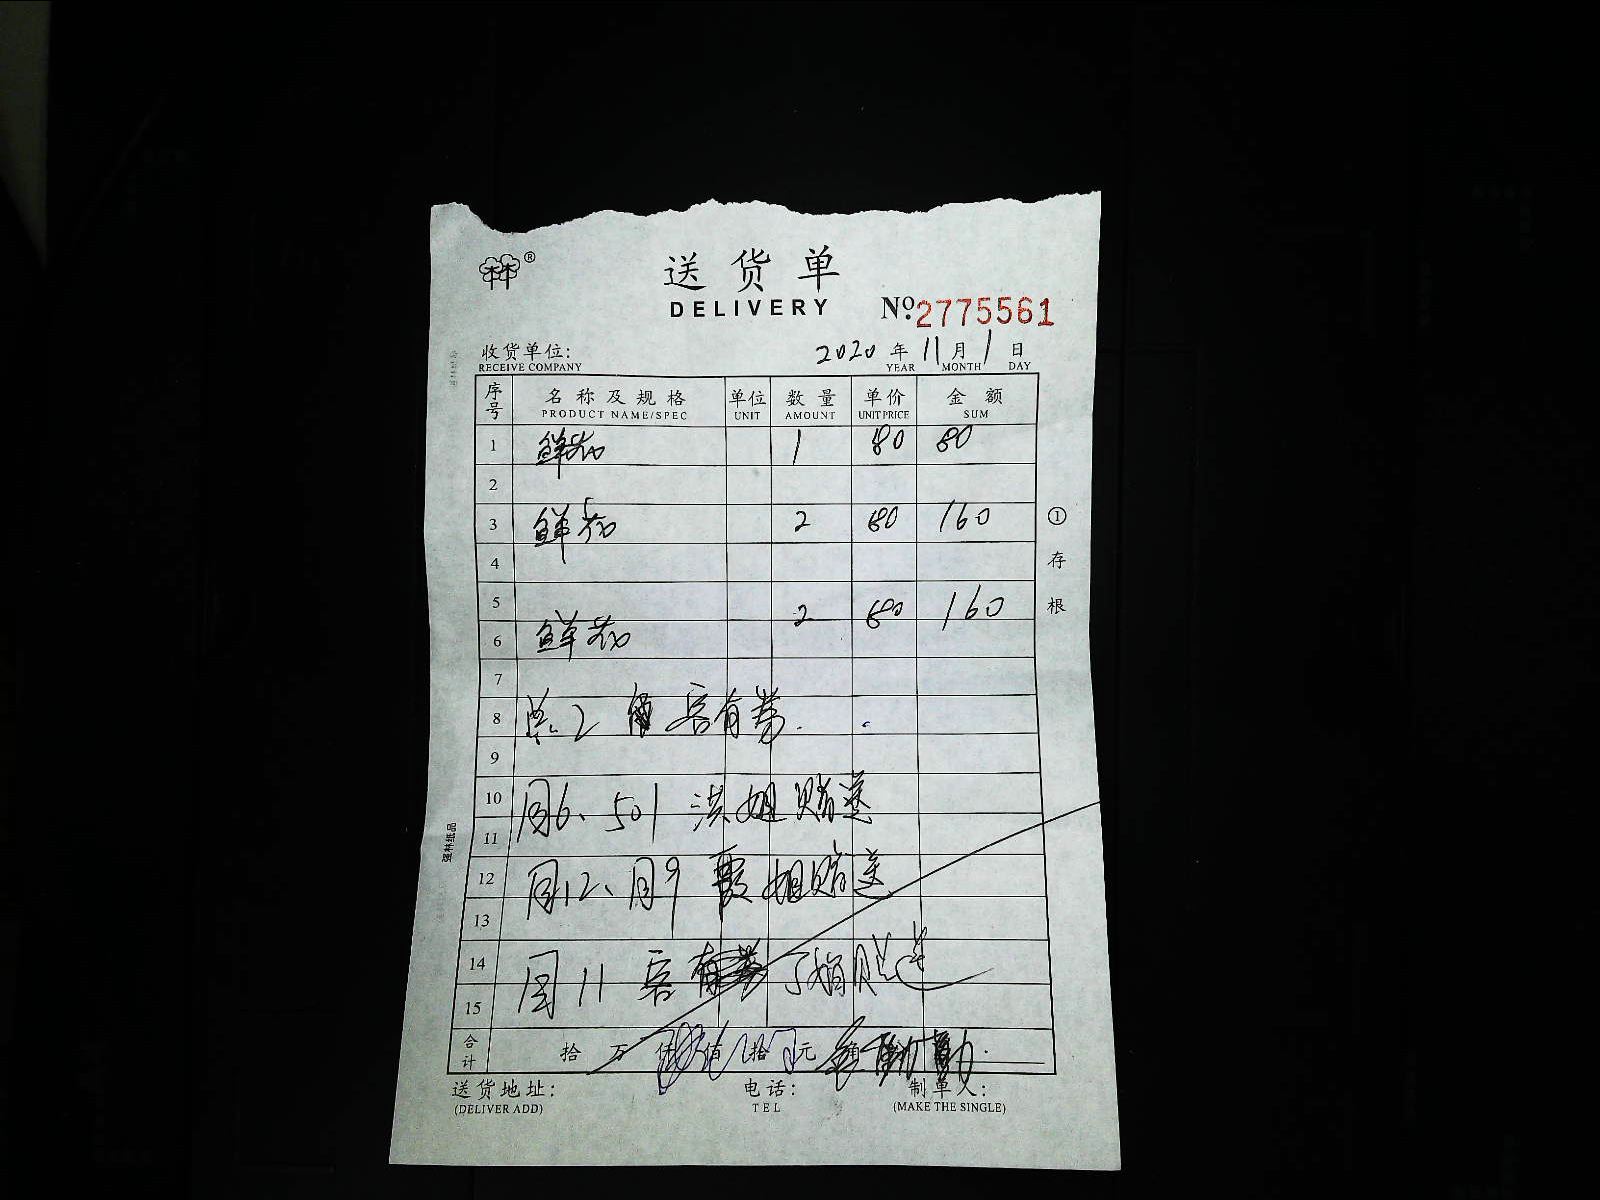 送货单
DELIVERY
No.2775561
收货单位:
2020年11月1日
RECEIVE COMPANY YEAR MONTH DAY
序号 名称及规格 单位 数量 单价 金额
PRODUCT NAME/SPEC UNIT AMOUNT UNIT PRICE SUM
1 鲜花 1 80 80
2
3 鲜花 2 80 160
4
5 2 80 160
6 鲜花
7
8 2 客有券.
9
10 周6、501 洪姐赠送
11
12 周12、周9 霞姐赠送
13
14 周11 客
15
合计 拾 万 仟 佰 拾 元
送货地址: 电话: 制单人:
(DELIVER ADD) TEL (MAKE THE SINGLE)
①存根
强林纸品